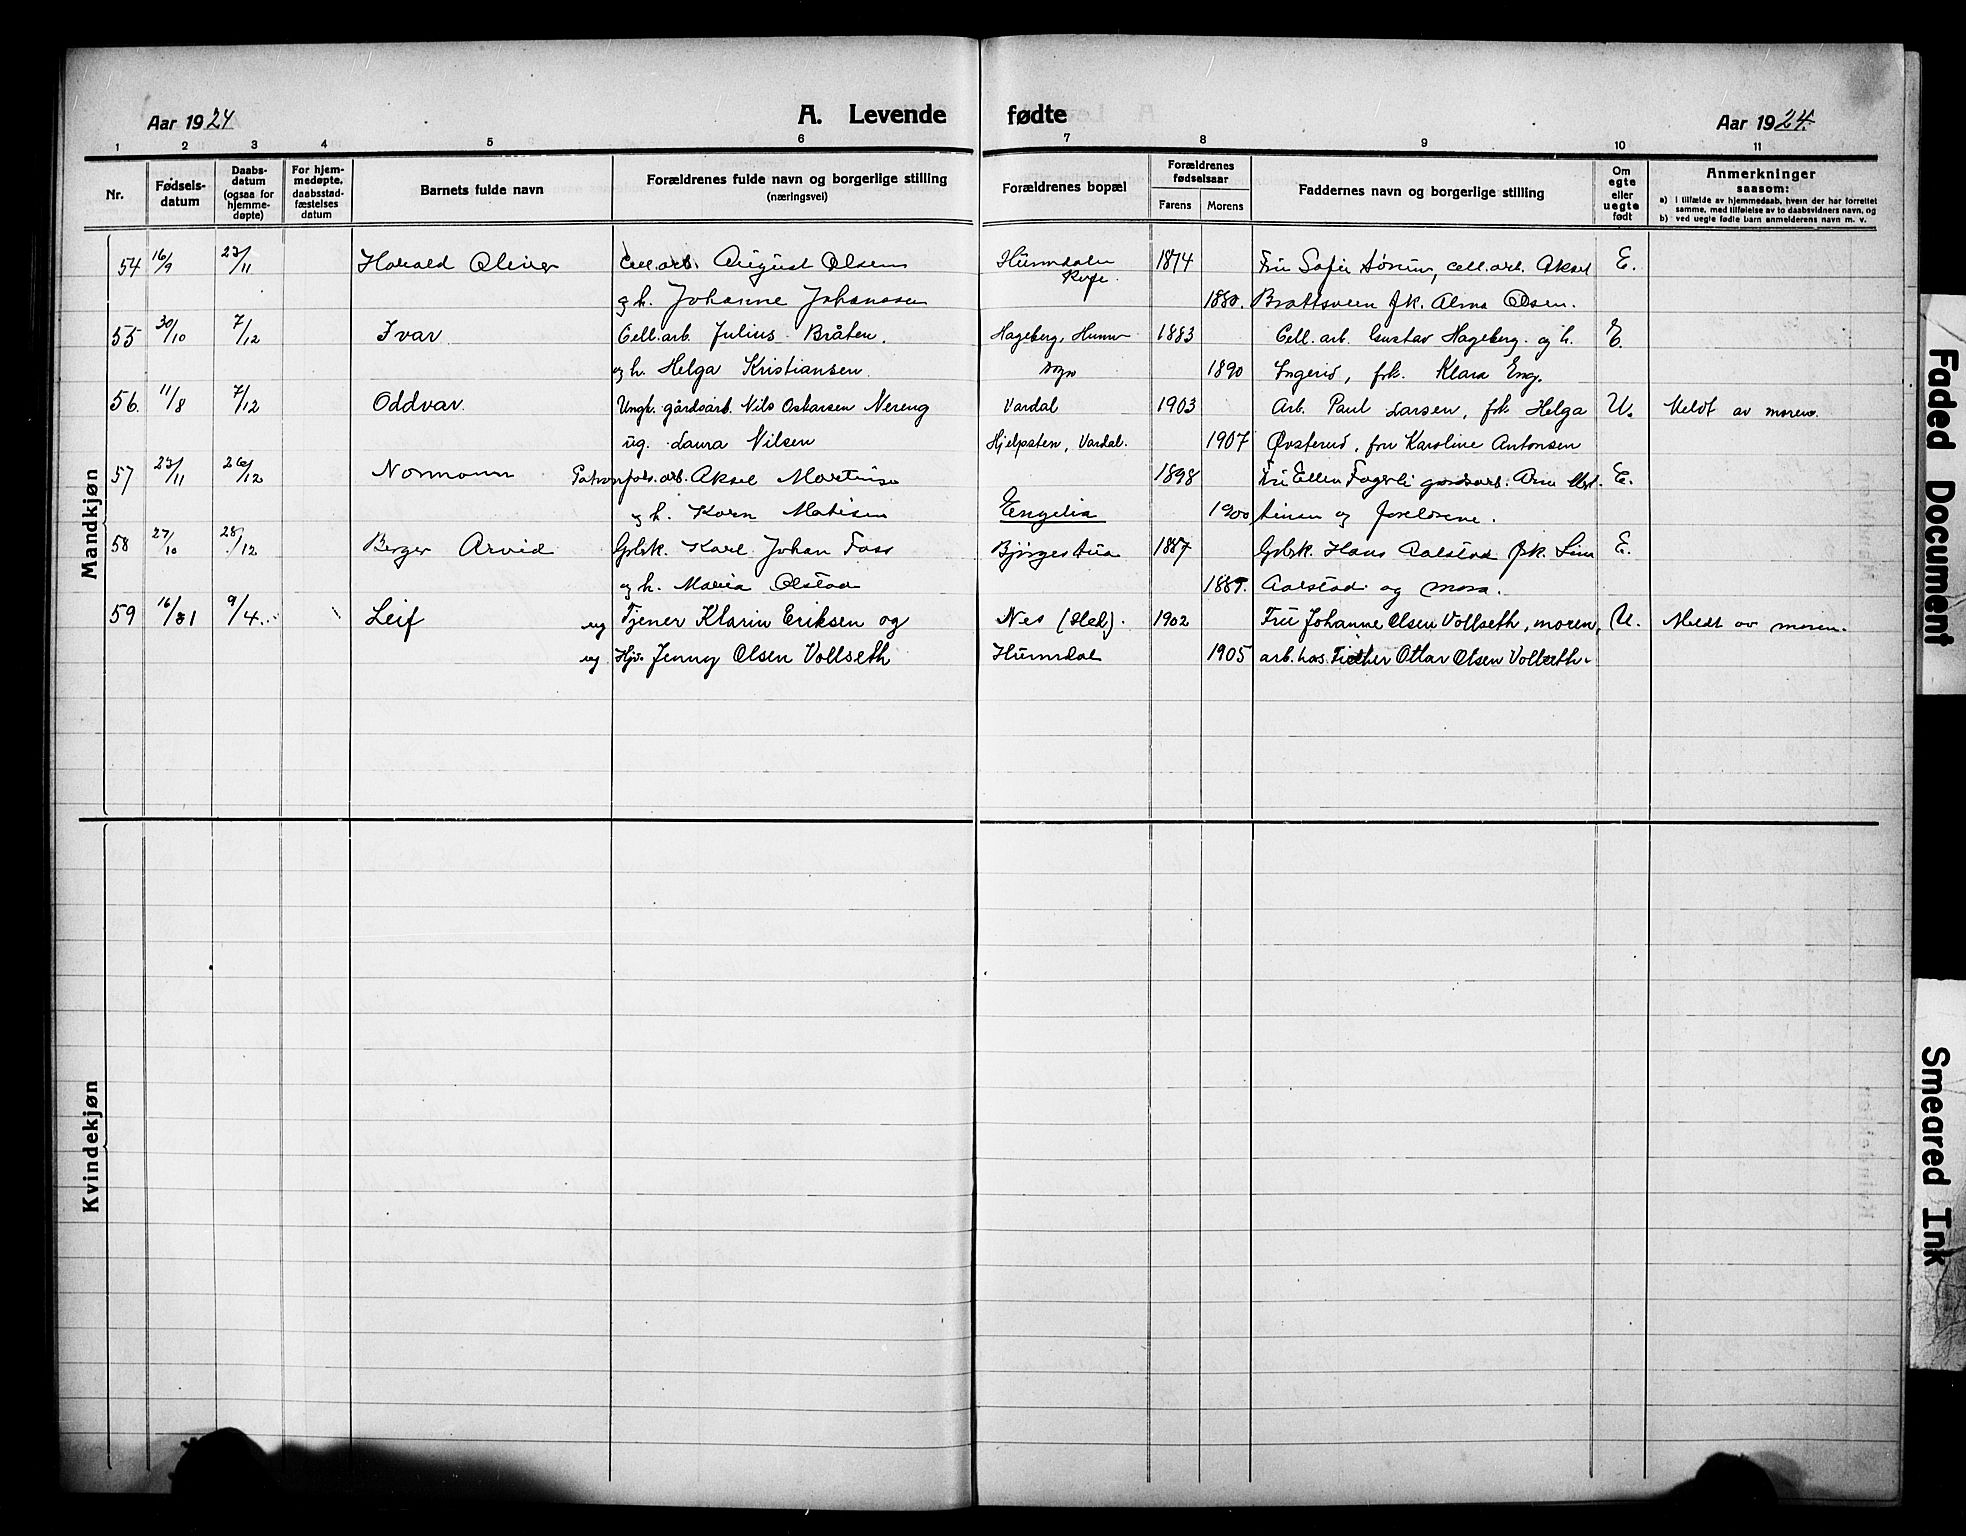 Aar 1924
A. Levende fødte
Aar 1924.
1 2 3 4 5 6 7 8 9 10 11
Nr.
Fødsels-
datum
Daabs-
datum
(ogsaa for
hjemme-
døpte)
For hjem-
medøpte,
daabsstad-
fæstelses
datum
Barnets fulde navn
Forældrenes fulde navn og borgerlige stilling
(næringsvei)
Forældrenes bopæl
Forældrenes
fødselsaar
Farens Morens
Faddernes navn og borgerlige stilling
Om
egte
eller
uegte
født
Anmerkninger
saasom:
a) i tilfælde av hjemmedaab, hvem der har forrettet
samme, med tilføielse av to daabsvidners navn, og
b) ved uegte fødte barn anmelderens navn m. v.
Mandkjøn
54 16/9 23/11 Harald Oliver Cell.arb. August Olsen Hunndalen 1874 Fru Sofie, cell.arb. Aksel E.
og h. Johanne Johanssen 1880. Brattsveen frk. Alma Olsen.
55 30/10 7/12 Ivar Cell.arb. Julius Bråten. Hageberg, Hunn 1883 Cell. arb. Gustav Hageberg. og h. E.
og h. Helga Kristiansen. sogn 1890 Ingerid, frk. Klara Eng.
56. 11/8 7/12 Oddvar. Ungk. gårdsarb. Nils Oskarsen Nereng Vardal 1903 Arb. Paul Larsen, frk Helga U. Meldt av moren.
ug. Laura Nilsen Hjelpsten, Vardal. 1907 Øvsterud, fru Karoline Antonsen
57 23/11 26/12 Normann Aksel 1898 Fru Ellen Fagerli gaardsarb. Arne E.
og h. Karen Matisen Engelia 1900 og foreldrene.
58 27/10 28/12 Berger Arvid Gbrk. Karl Johan Foss 1887 Gbrk. Hans Aalstad frk. E.
og h. Maria Olstad Aalstad og mora.
59 16/81 9/4. Leif ug Tjener Klarin Eriksen og Nes (Hed). 1902 Fru Johanne Olsen Vollseth, moren, U. Meldt av moren.
ug Hjv. Jenny Olsen Vollseth Hunndal 1905 arb. Ottar Olsen Vollseth.
Kvindekjøn
Faded Document
Smeared Ink